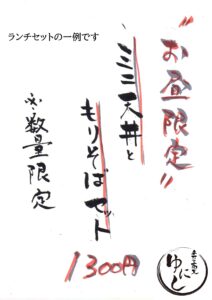 ランチセットの一例です
"お昼限定"
ミニ天丼と
もりそばセット
※数量限定
1300円